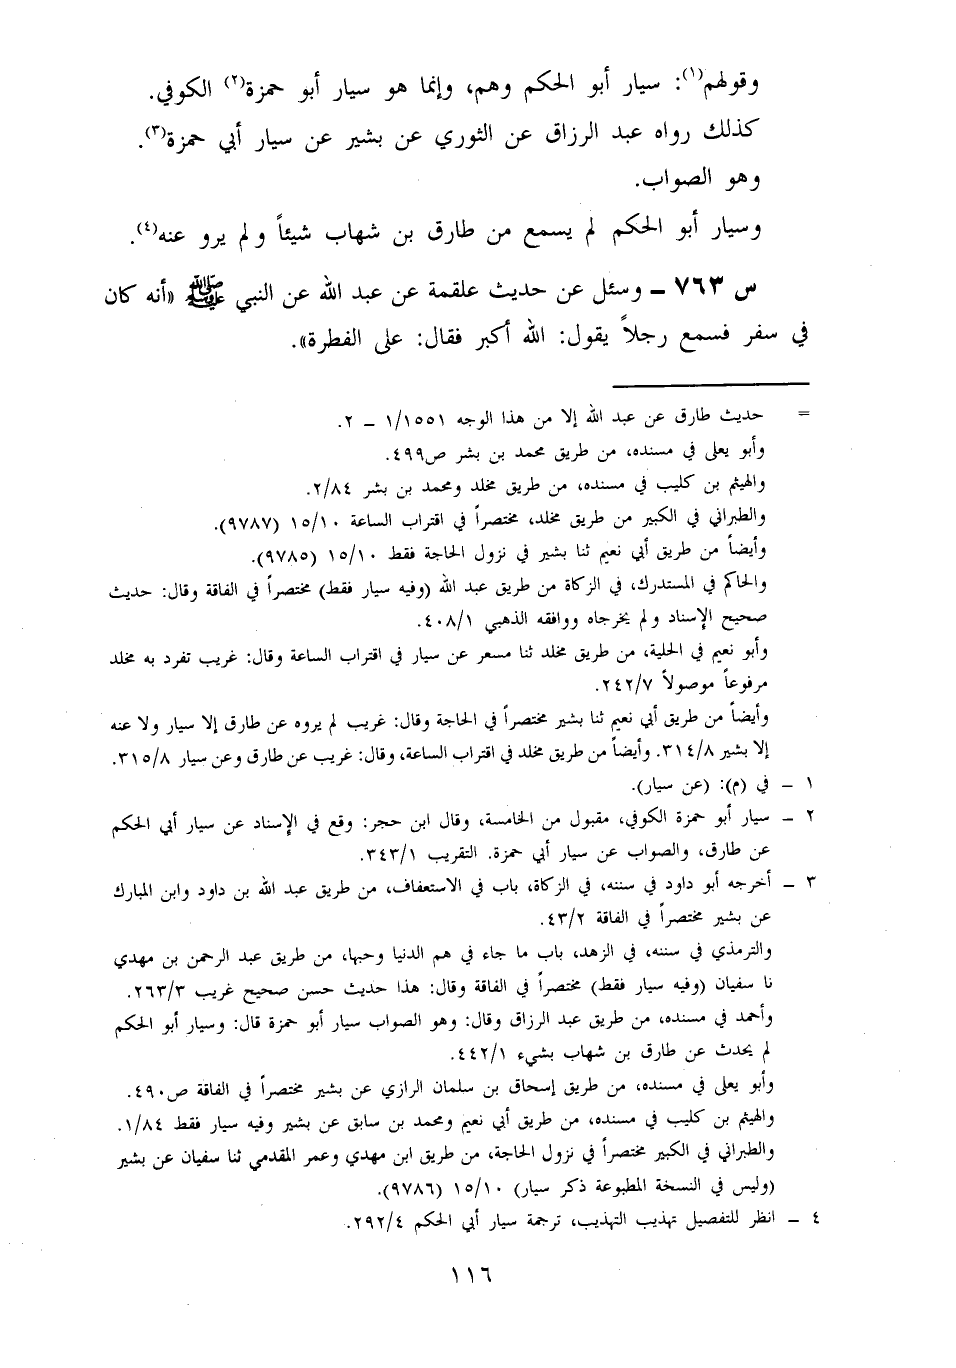 وقولهم(١): سيار أبو الحكم وهم، وإنما هو سيار أبو حمزة(٢) الكوفي.
كذلك رواه عبد الرزاق عن الثوري عن بشير عن سيار أبي حمزة(٣).
وهو الصواب.
وسيار أبو الحكم لم يسمع من طارق بن شهاب شيئاً ولم يرو عنه(٤).
س ٧٦٣ – وسئل عن حديث علقمة عن عبد الله عن النبي ﷺ «أنه كان
في سفر فسمع رجلاً يقول: الله أكبر فقال: على الفطرة».
= حديث طارق عن عبد الله إلا من هذا الوجه ١/١٥٥١ – ٢.
وأبو يعلى في مسنده، من طريق محمد بن بشر ص٤٩٩.
والهيثم بن كليب في مسنده، من طريق مخلد ومحمد بن بشر ٢/٨٤.
والطبراني في الكبير من طريق مخلد، مختصراً في اقتراب الساعة ١٥/١٠ (٩٧٨٧).
وأيضاً من طريق أبي نعيم ثنا بشير في نزول الحاجة فقط ١٥/١٠ (٩٧٨٥).
والحاكم في المستدرك، في الزكاة من طريق عبد الله (وفيه سيار فقط) مختصراً في الفاقة وقال: حديث
صحيح الإسناد ولم يخرجاه ووافقه الذهبي ٤٠٨/١.
وأبو نعيم في الحلية، من طريق مخلد ثنا مسعر عن سيار في اقتراب الساعة وقال: غريب تفرد به مخلد
مرفوعاً موصولاً ٢٤٢/٧.
وأيضاً من طريق أبي نعيم ثنا بشير مختصراً في الحاجة وقال: غريب لم يروه عن طارق إلا سيار ولا عنه
إلا بشير ٣١٤/٨. وأيضاً من طريق مخلد في اقتراب الساعة، وقال: غريب عن طارق وعن سيار ٣١٥/٨.
١ – في (م): (عن سيار).
٢ – سيار أبو حمزة الكوفي، مقبول من الخامسة، وقال ابن حجر: وقع في الإسناد عن سيار أبي الحكم
عن طارق، والصواب عن سيار أبي حمزة. التقريب ٣٤٣/١.
٣ – أخرجه أبو داود في سننه، في الزكاة، باب في الاستعفاف، من طريق عبد الله بن داود وابن المبارك
عن بشير مختصراً في الفاقة ٤٣/٢.
والترمذي في سننه، في الزهد، باب ما جاء في هم الدنيا وحبها، من طريق عبد الرحمن بن مهدي
نا سفيان (وفيه سيار فقط) مختصراً في الفاقة وقال: هذا حديث حسن صحيح غريب ٢٦٣/٣.
وأحمد في مسنده، من طريق عبد الرزاق وقال: وهو الصواب سيار أبو حمزة قال: وسيار أبو الحكم
لم يحدث عن طارق بن شهاب بشيء ٤٤٢/١.
وأبو يعلى في مسنده، من طريق إسحاق بن سلمان الرازي عن بشير مختصراً في الفاقة ص٤٩٠.
والهيثم بن كليب في مسنده، من طريق أبي نعيم ومحمد بن سابق عن بشير وفيه سيار فقط ١/٨٤.
والطبراني في الكبير مختصراً في نزول الحاجة، من طريق ابن مهدي وعمر المقدمي ثنا سفيان عن بشير
(وليس في النسخة المطبوعة ذكر سيار) ١٥/١٠ (٩٧٨٦).
٤ – انظر للتفصيل تهذيب التهذيب، ترجمة سيار أبي الحكم ٢٩٢/٤.
١١٦